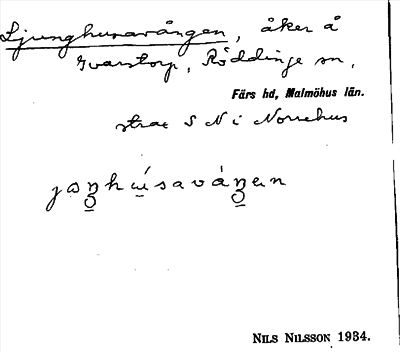 Ljunghusavången, åker å
Ivarstorp, Röddinge sn,
Färs hd, Malmöhus län.
strax S N i Norrehus
NILS NILSSON 1934.